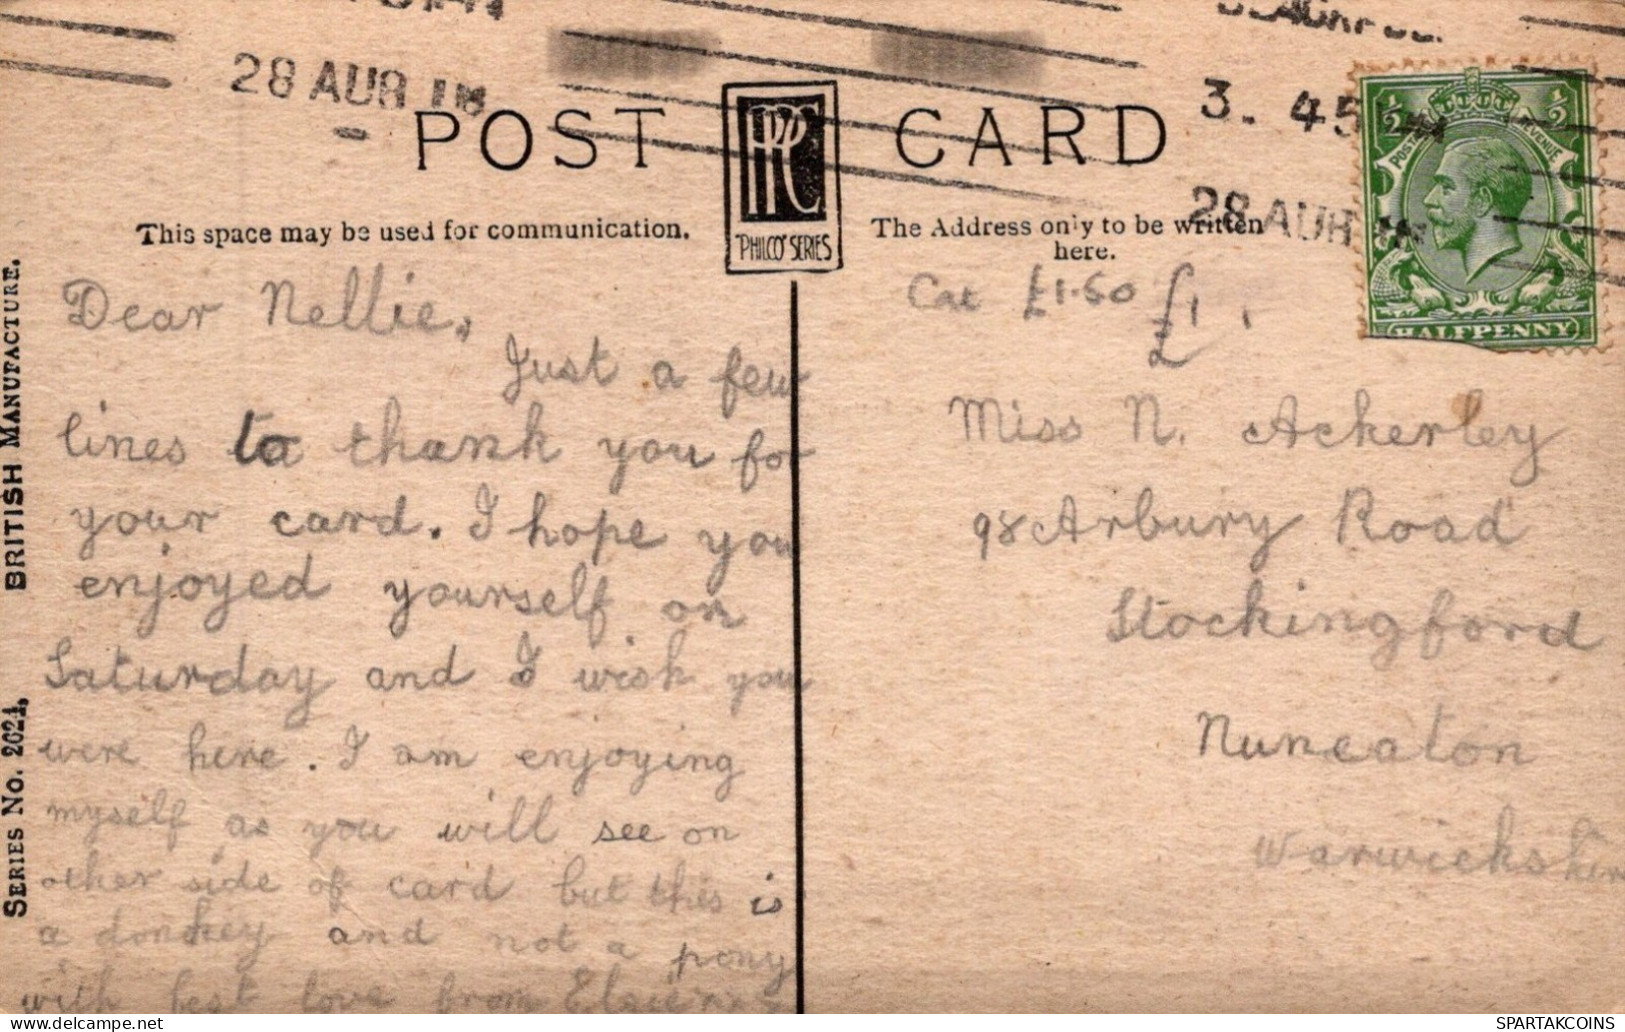 28 AUG
3. 45
28 AUG
POST CARD
PPC
"PHILCO" SERIES
½ ½
POSTAGE REVENUE
HALFPENNY
This space may be used for communication.
The Address only to be written
here.
BRITISH MANUFACTURE.
SERIES No. 2024.
Dear Nellie,
Just a few
lines to thank you for
your card. I hope you
enjoyed yourself on
Saturday and I wish you
were here. I am enjoying
myself as you will see on
other side of card but this is
a donkey and not a pony
with best love from
Cat £1.50 £1
Miss N. Ackerley
98 Arbury Road
Stockingford
Nuneaton
Warwickshire
SPARTAKCOINS